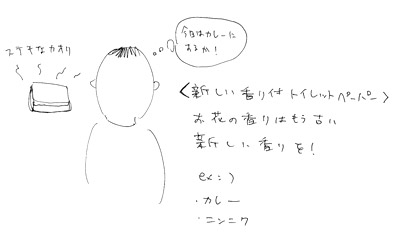 ステキなカオリ
今日はカレーに
するか!
<新しい香り付トイレットペーパー>
お花の香りはもう古い
新しい香りを!
ex:)
・カレー
・ニンニク